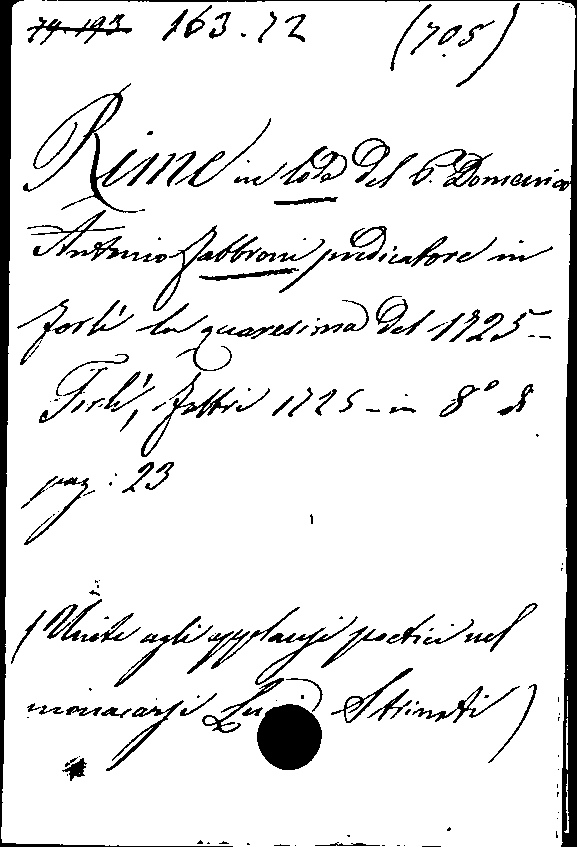 79.193 163.72 (705)
Rime in lode del P. Domenico
Antonio Fabbroni predicatore in
Forlì la quaresima del 1725 -
Forlì, Fabbri 1725 - in 8° di
pag: 23
(Unite agli applausi poetici nel
monacarsi Strinati)